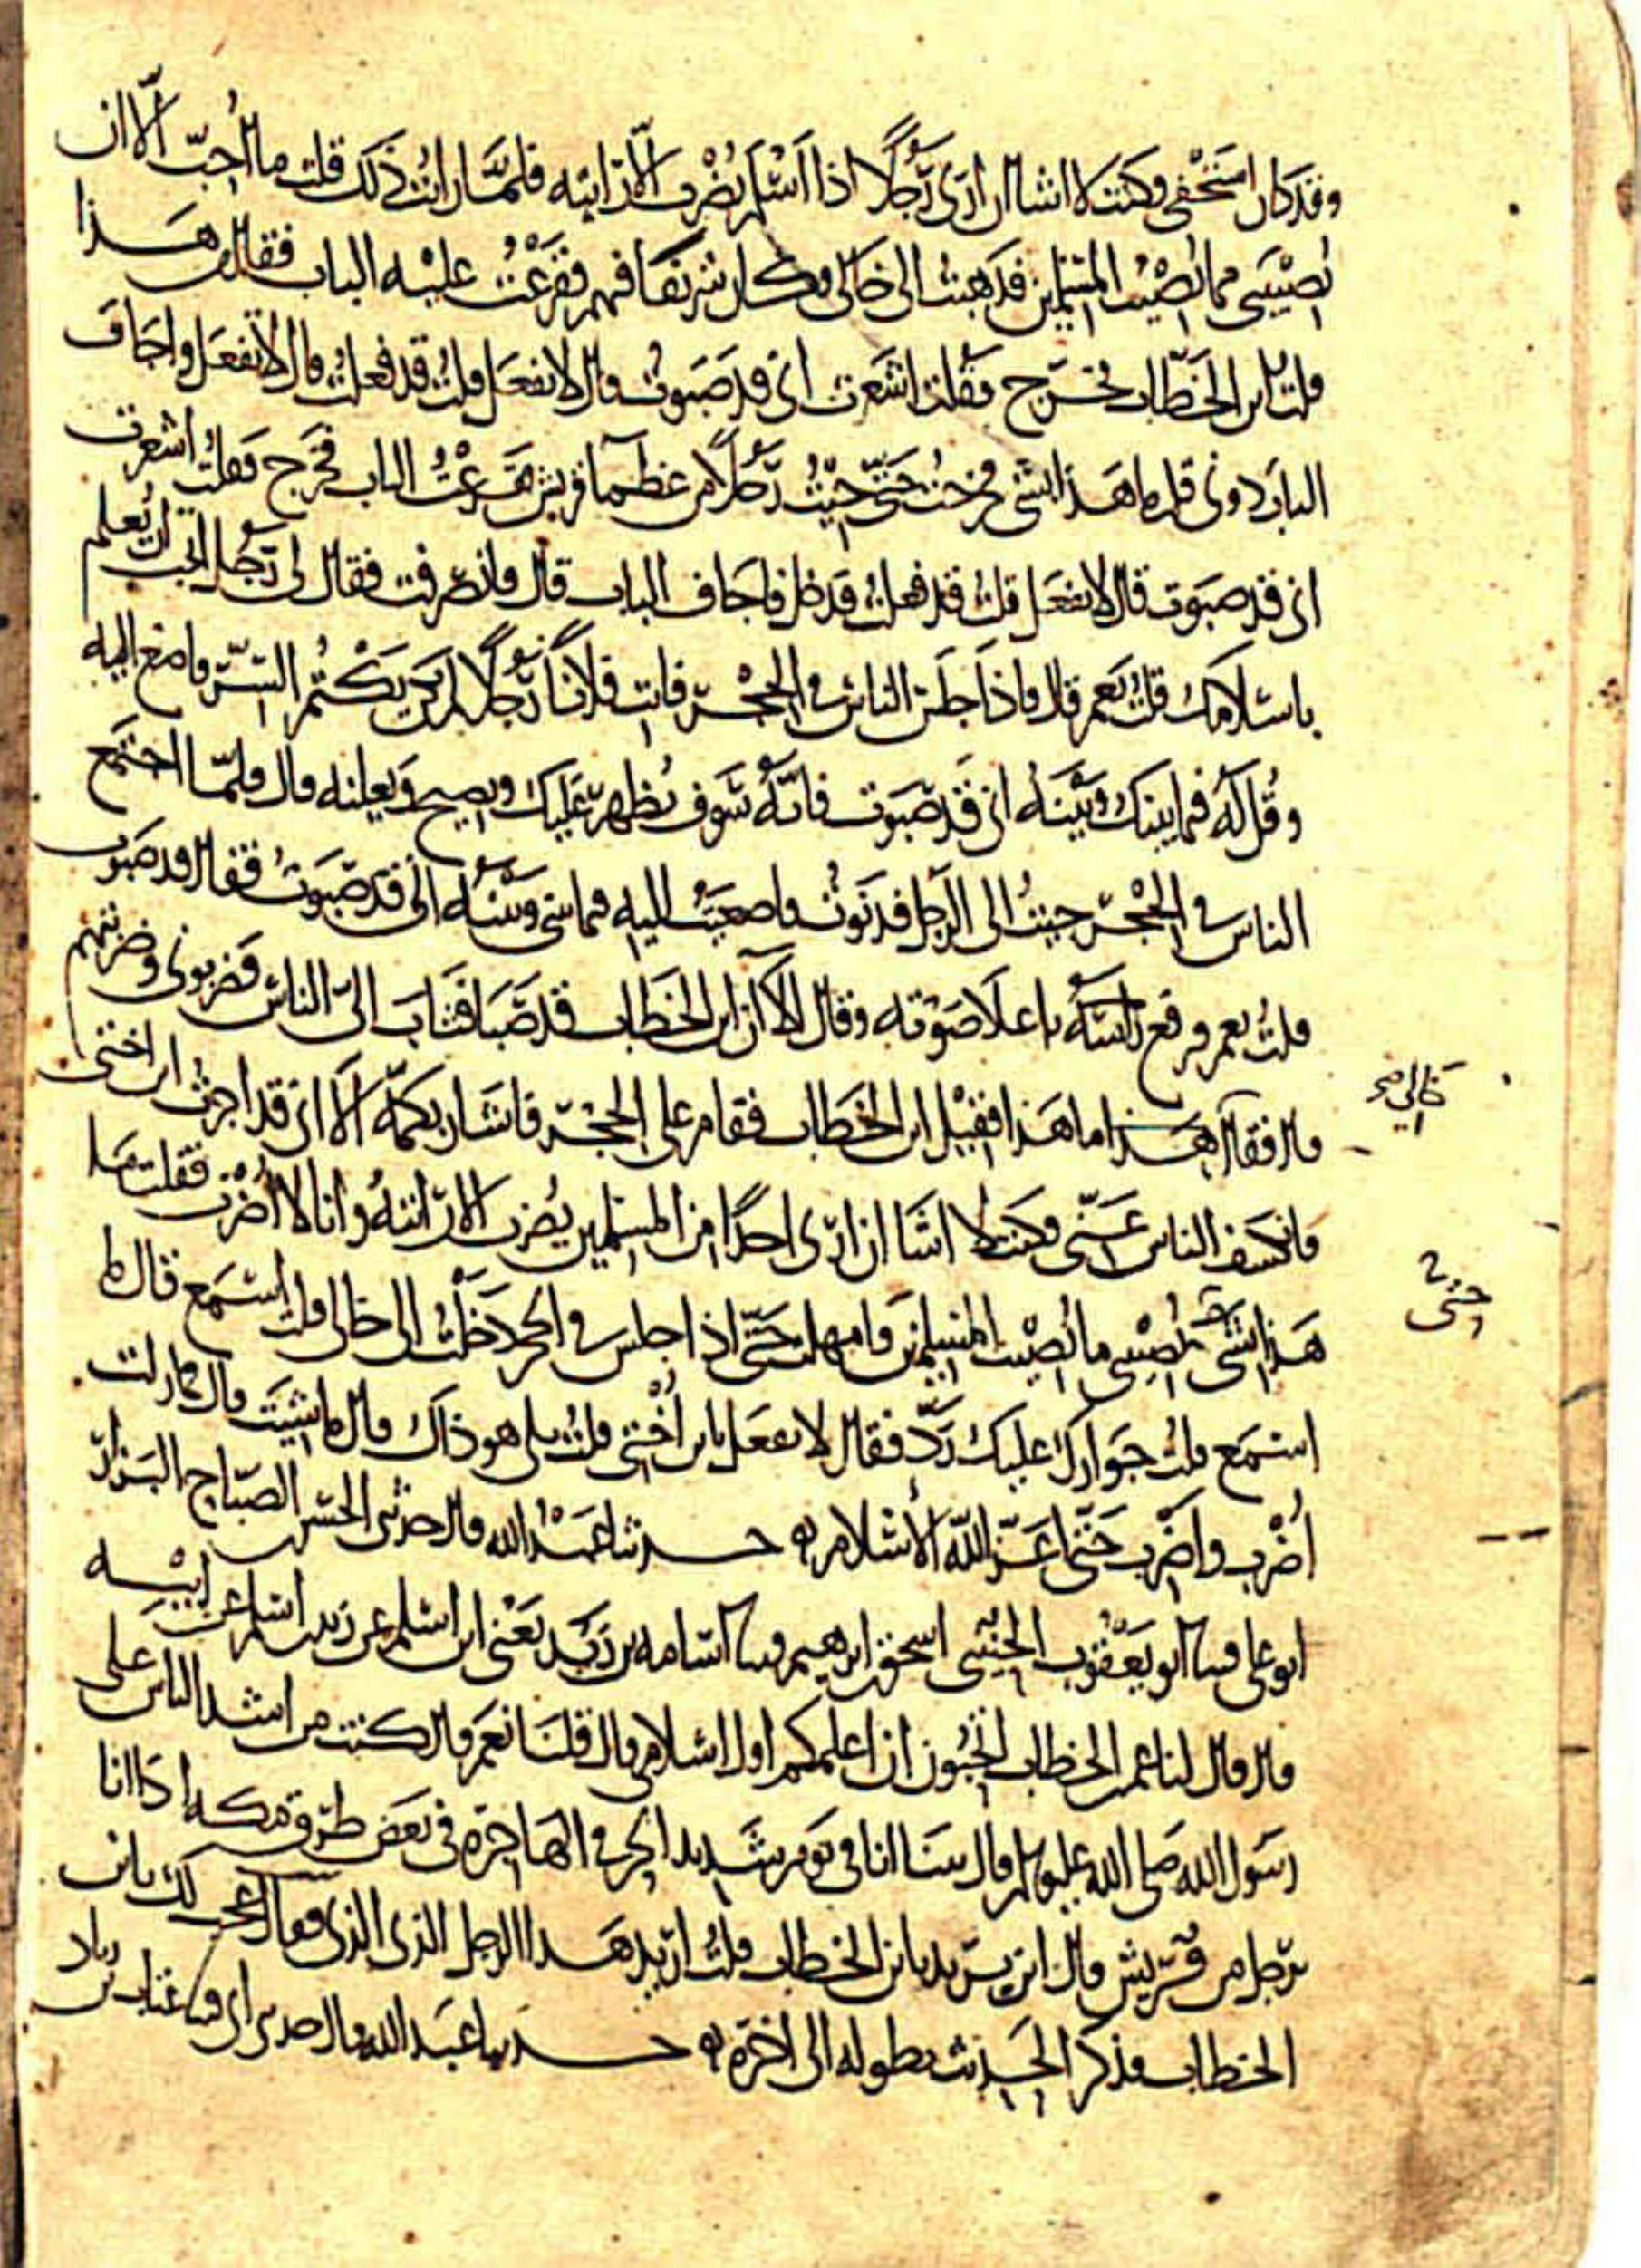 وقد كان استخفى وكنت لا اشا ان ارى رجلا اذا اسلم يضرب الا رايته فلما رايت ذلك قلت ما احب الا ان
يصيبنى مما يصيب المسلمين فذهبت الى خالى وكان شريفا فيهم فقرعت عليه الباب فقال من هذا
قلت ابن الخطاب فخرج فقلت اشعرت انى قد صبوت قال لا تفعل قلت قد فعلت قال لا تفعل واجاف
الباب دونى قلت ما هذا بشى فخرجت حتى جيت رجلا من عظما قريش فقرعت الباب فخرج فقلت اشعرت
انى قد صبوت قال لا تفعل قلت قد فعلت فدخل فاجاف الباب قال فانصرفت فقال لى رجل اتحب ان يعلم
باسلامك قلت نعم قال فاذا جلس الناس فى الحجر فات فلانا رجلا لم يكن يكتم السر فاصغ اليه
وقل له فيما بينك وبينه انى قد صبوت فانه سوف يظهر عليك ويصيح ويعلنه قال فلما اجتمع
الناس فى الحجر جيت الى الرجل فدنوت فاصغيت اليه فيما بينى وبينه انى قد صبوت فقال قد صبوت
قلت نعم فرفع راسه باعلا صوته وقال الا ان ابن الخطاب قد صبا فثاب الى الناس فضربونى وضربتهم
قال فقال هذا ما هذا فقيل ابن الخطاب فقام على الحجر فاشار بكمه الا انى قد اجرت ابن اختى
خالى صح
فانكشف الناس عنى وكنت لا اشا ان ارى احدا من المسلمين يضرب الا رايته وانا لا اضرب فقلت ما
هذا بشى يصيبنى ما يصيب المسلمين فامهلت حتى اذا جلس فى الحجر دخلت الى خالى قلت استمع قال ما
حتى
استمع قلت جوارك عليك رد فقال لا تفعل يابن اختى قلت بلى هو ذاك قال ما شيت قال فما زلت
اضرب واضرب حتى اعز الله الاسلام حدثنا عبد الله قال حدثنى الحسن بن الصباح البزار
ابو على قثنا ابو يعقوب الحنينى اسحق بن ابرهيم قثنا اسامه بن زيد يعنى ابن اسلم عن زيد بن اسلم عن ابيه
قال قال لنا عمر بن الخطاب اتحبون ان اعلمكم اول اسلامى قال قلنا نعم قال كنت من اشد الناس على
رسول الله صلى الله عليه وسلم قال بينا انا فى يوم شديد الحر فى الهاجرة فى بعض طرق مكه اذا انا
برجل من قريش قال اين تريد يابن الخطاب قلت اريد هذا الرجل الذى الذى فقال عجب لك يابن
الخطاب فذكر الحديث بطوله الى اخره حدثنا عبد الله قال حدثنى ابى قثنا عتاب بن زياد